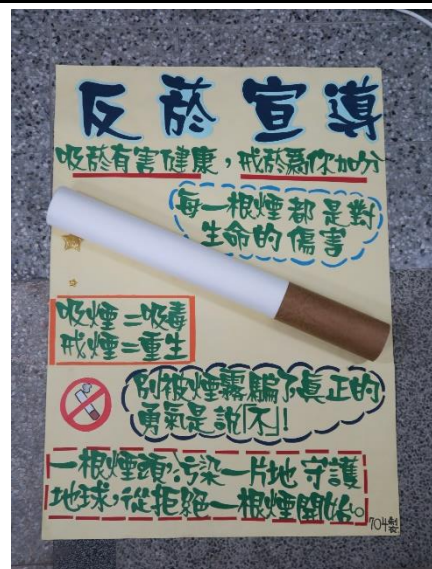 反菸宣導
吸菸有害健康，戒菸為你加分
每一根煙都是對
生命的傷害
吸煙＝吸毒
戒煙＝重生
別被煙霧騙了真正的
勇氣是說「不」!
一根煙頭,污染一片地守護
地球,從拒絕一根煙開始。
704製